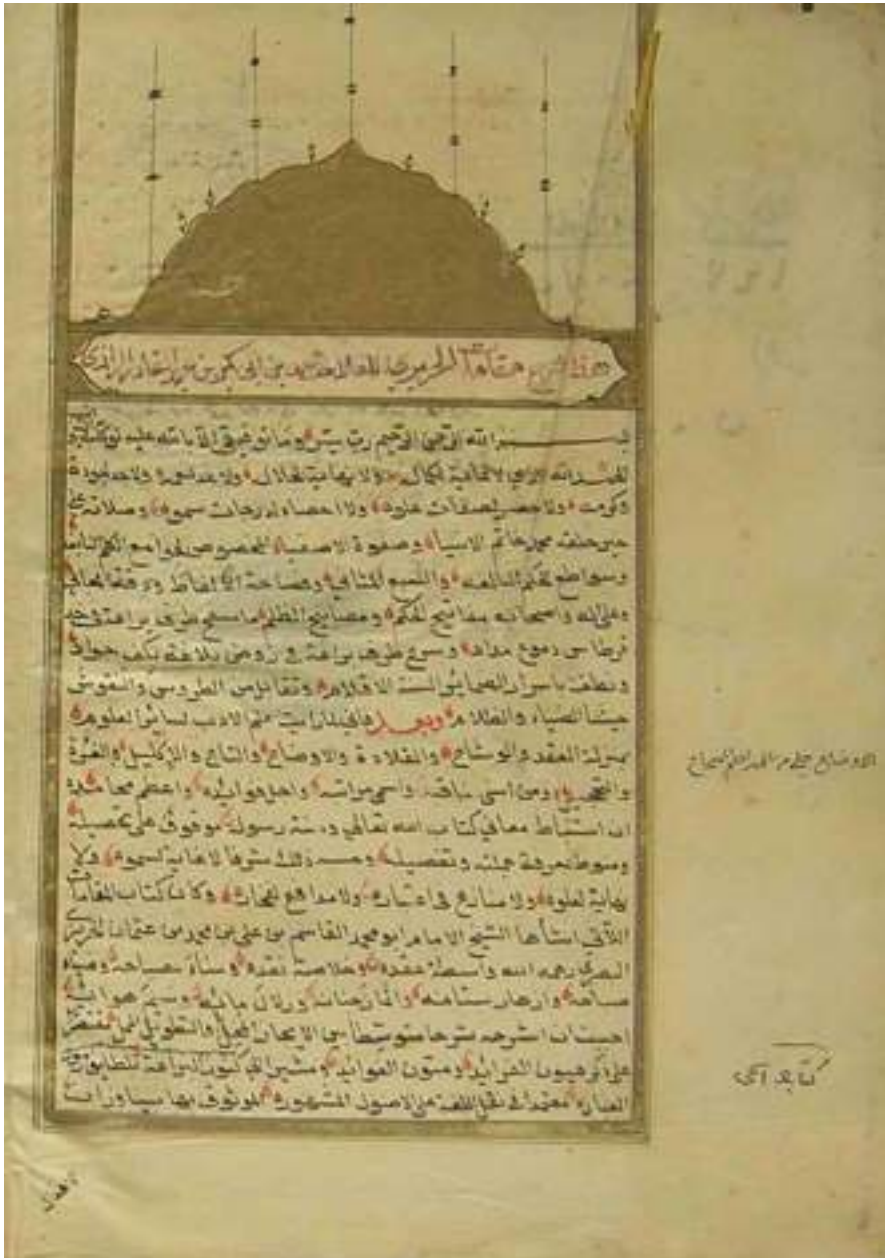 هذا شرح مقامات الحريري للعلامة محمد بن ابي بكر بن عبد القادر الرازي
بسم الله الرحمن الرحيم رب يسر وما توفيقي الا بالله عليه توكلت
الحمد لله الذي لا لكماله ولا نهاية لجلاله ولا ولا لجوده
وكرمه ولا حصر لصفات علوه ولا احصاء لدرجات سموه وصلاته على
خير خلقه محمد خاتم الانبياء وصفوة الاصفياء المخصوص بجوامع الكلم
وسواطع الحكم البالغة والسبع المثاني وفصاحة الالفاظ ودقة المعاني
وعلى اله واصحابه مفاتيح الحكم ومصابيح الظلم ما سفح طرف يراعة في خد
قرطاس دموع مداد وسرح طرف براعة في روض بلاغة بكف جواد
ونطقت باسرار الضمائر السنة الاقلام وتقابل من الطروس والنقوش
جيشا الضياء والظلام وبعد فاني لما رايت علم الادب لسائر العلوم
بمنزلة العقد والوشاح والقلادة والاوضاح والتاج والاكليل والغرة
والتحجيل ومن اسنى مناقبه واسمى مراتبه واجل فوائده واعظم محامده
ان استنباط معاني كتاب الله تعالى وسنة رسوله موقوف على تحصيله
ومنوط بمعرفة جملته وتفصيله وحسبه ذلك شرفا لا غاية لسموه ولا
نهاية لعلوه ولا منازع في اعتباره ولا مدافع وكان كتاب المقامات
التي انشأها الشيخ الامام ابو محمد القاسم بن علي بن محمد بن عثمان الحريري
البصري رحمه الله واسطة عقده وخلاصة نقده
وازهار
احببت ان اشرحه شرحا متوسطا بين الايجاز المخل والتطويل الممل مقتصرا
على ذكر عيون الفرائد ومتون الفوائد ومشيرا الى كنوز البراعة
العبارة معتمدا في نقل اللغة على الاصول المشهورة الموثوق بها
الاوضاح حلي من الدراهم الصحاح